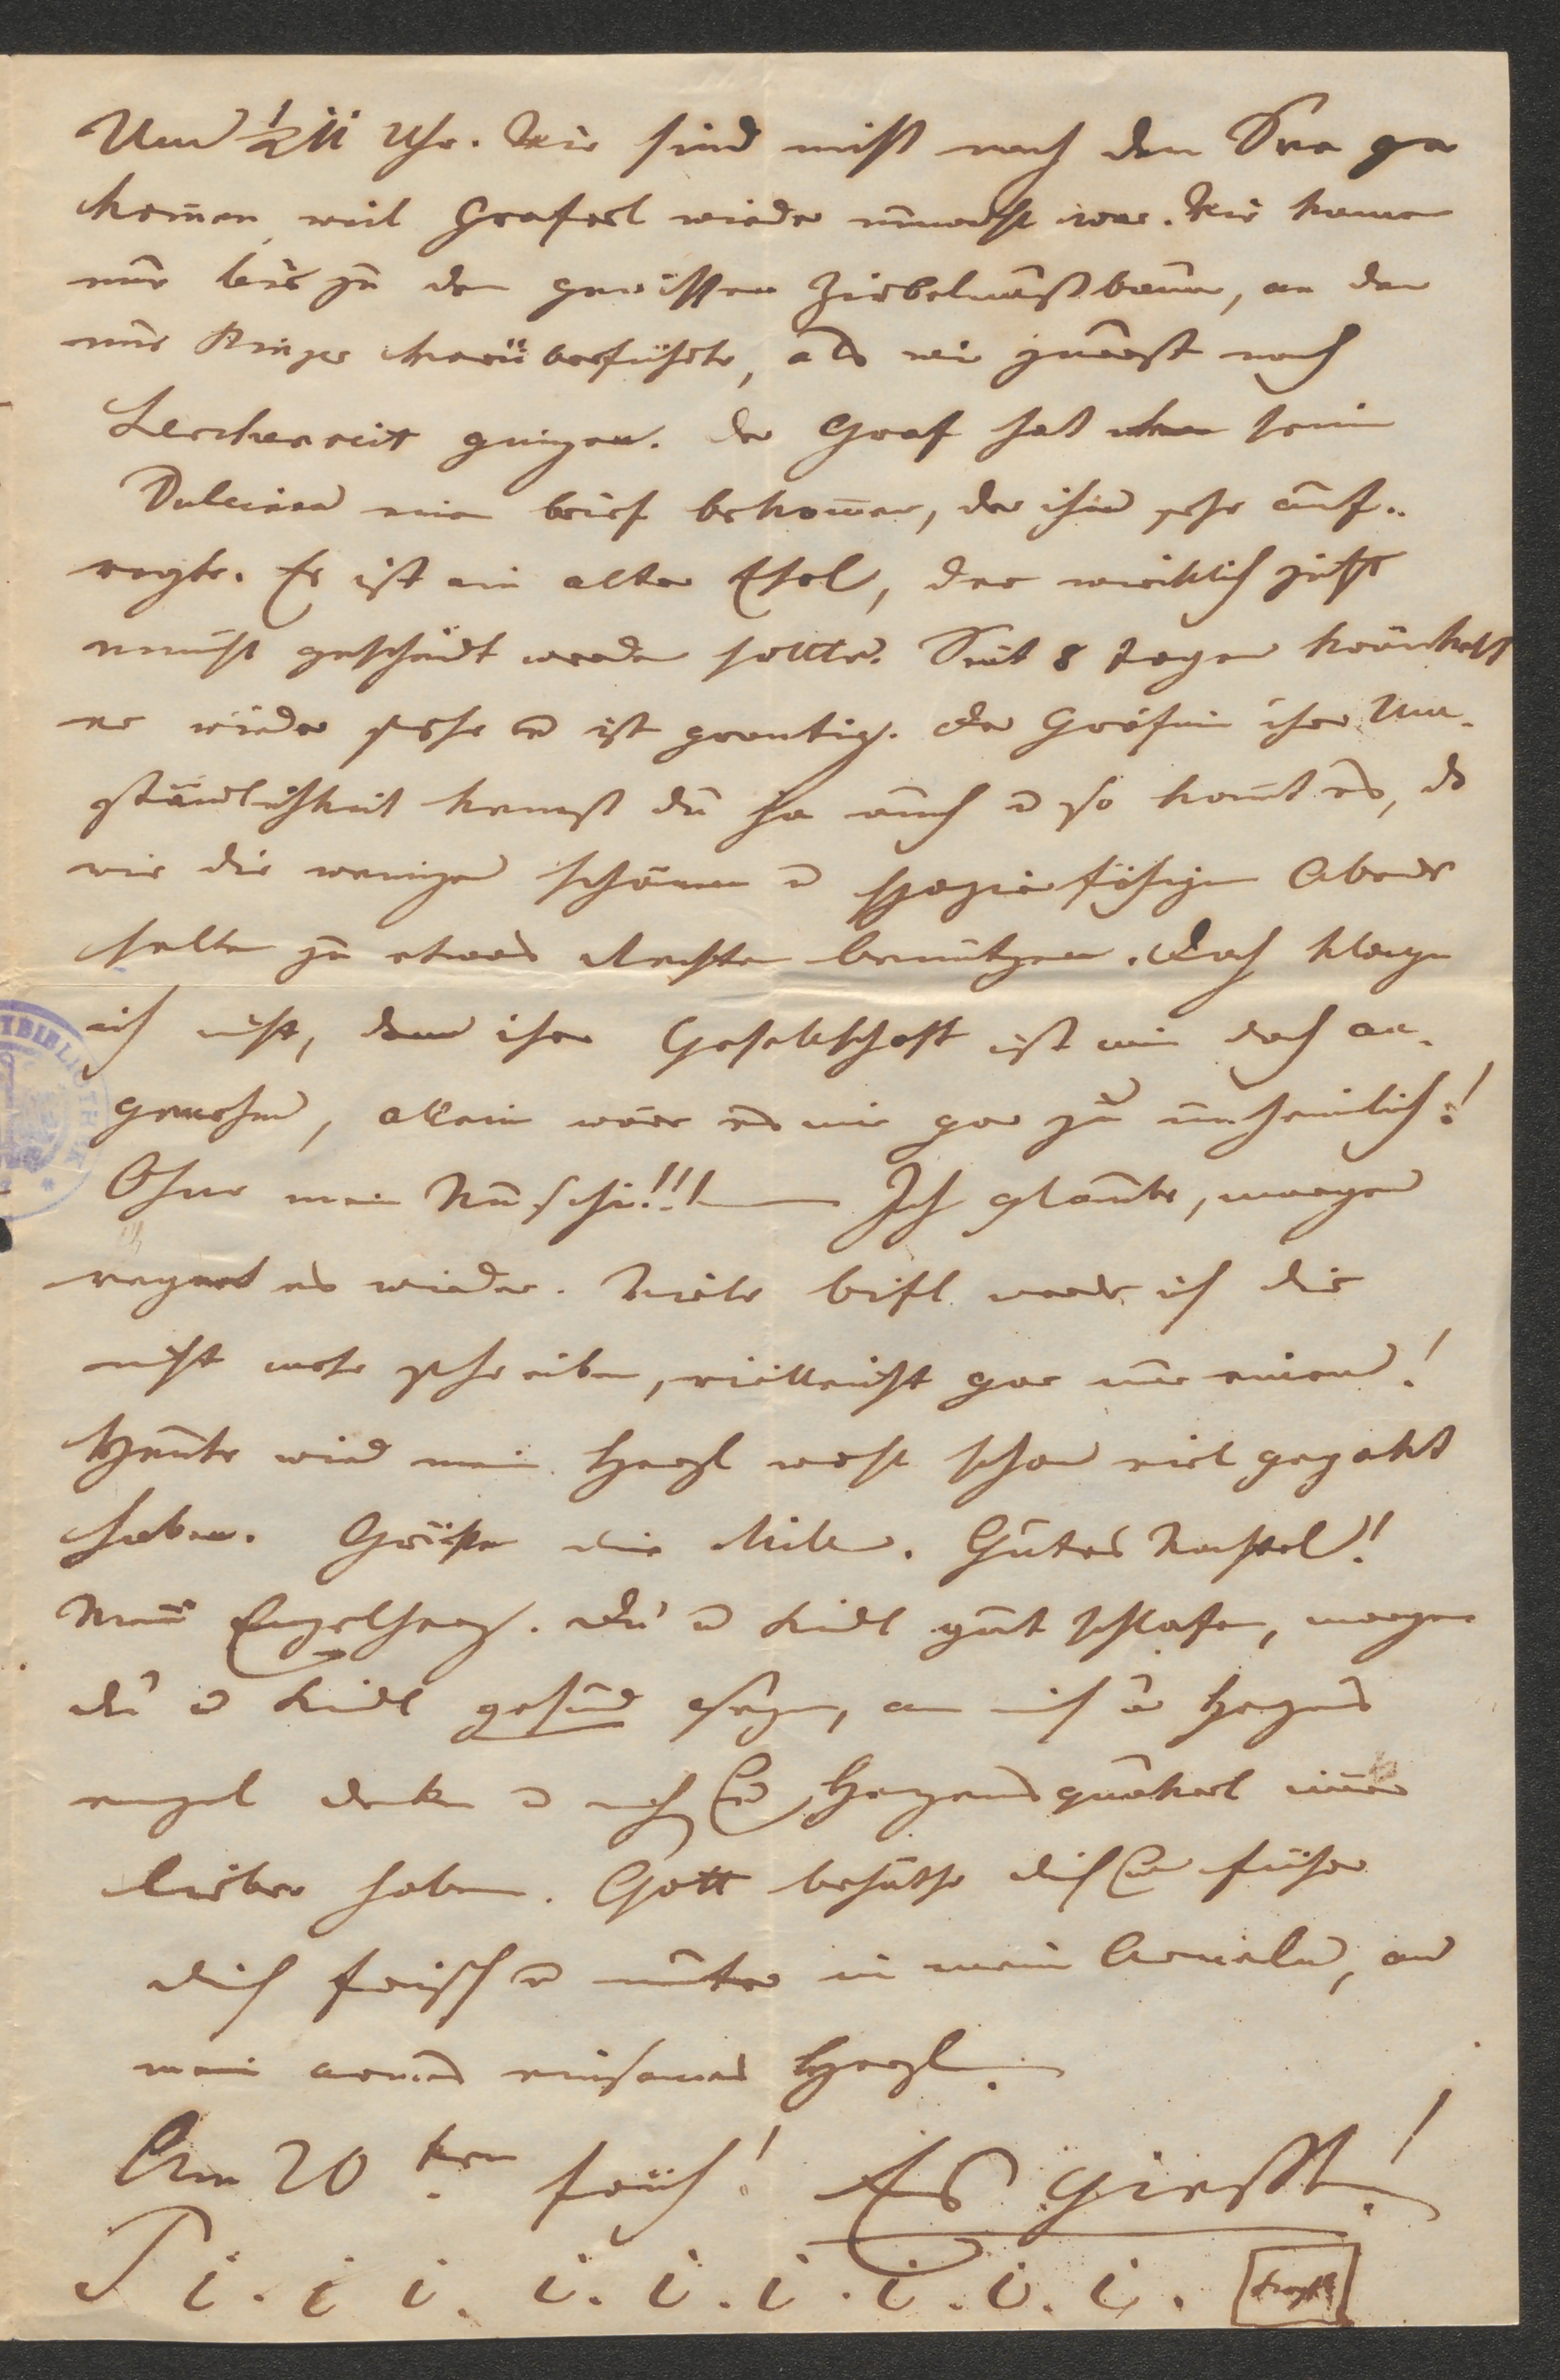 Um ½ 11 Uhr. Wir sind nicht nach den See ge
kom̄en weil Graferl wieder unwohl war. Wir kamen
nur bis zu den gewissen Zirbelnußbaum, an den
uns Ringer vorüberführte, als wir zuerst nach
Lerchenreit gingen. Der Graf hat von sein
Dulcinea ein brief bekom̄en, der ihn sehr auf-
regte. Er ist ein alter Esel, der wirklich
geschieht werden sollte. Seit 8 Tagen kränkelt
er wieder sehr u ist grantig. Der Gräfin ihre Um-
ständlichkeit kennst du ja auch u so kom̄t es, daß
wir die wenigen schönen u spazierfähigen Abende
selten zu etwas Rechten benützen. Doch klage
ich nicht, denn ihre Gesellschaft ist mir doch an-
genehm, allein wäre es mir gar zu unheimlich!
Ohne mein Nuschi!!! — Ich glaube, morgen
regnet es wieder. Viele brifl werde ich dir
nicht mehr schreiben, vielleicht gar nur einen!
Heute wird mein Herzl wohl schon viel gepakt
haben. Grüße die Mili. Gutes Nachtel!
Mein Engelherz. Du u Kidl gut schlafen, morgen
du u Kidl gesund sein, an mich u Herzens
engel denken u mich u Herzensquakerl im̄er
lieber haben. Gott behüthe dich u führe
dich frisch u munter in mein Armeln, an
mein armes einsames Herzl.
Am 20ten früh! Es giesst!
P i. i i i. i. i. i. i. i. i.